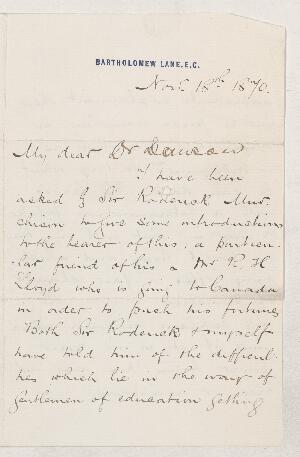 BARTHOLOMEW LANE. E.C.
Nov. 18th 1870.
My dear Dr Dawson
I have been
asked by Sir Roderick Mur-
chison to give some introductions
to the bearer of this; a particu-
-lar friend of his a Mr R H
Lloyd who is going to Canada
in order to push his fortunes
Both Sir Roderick & myself
have told him of the difficul-
ties which lie in the way of
gentlemen of education getting